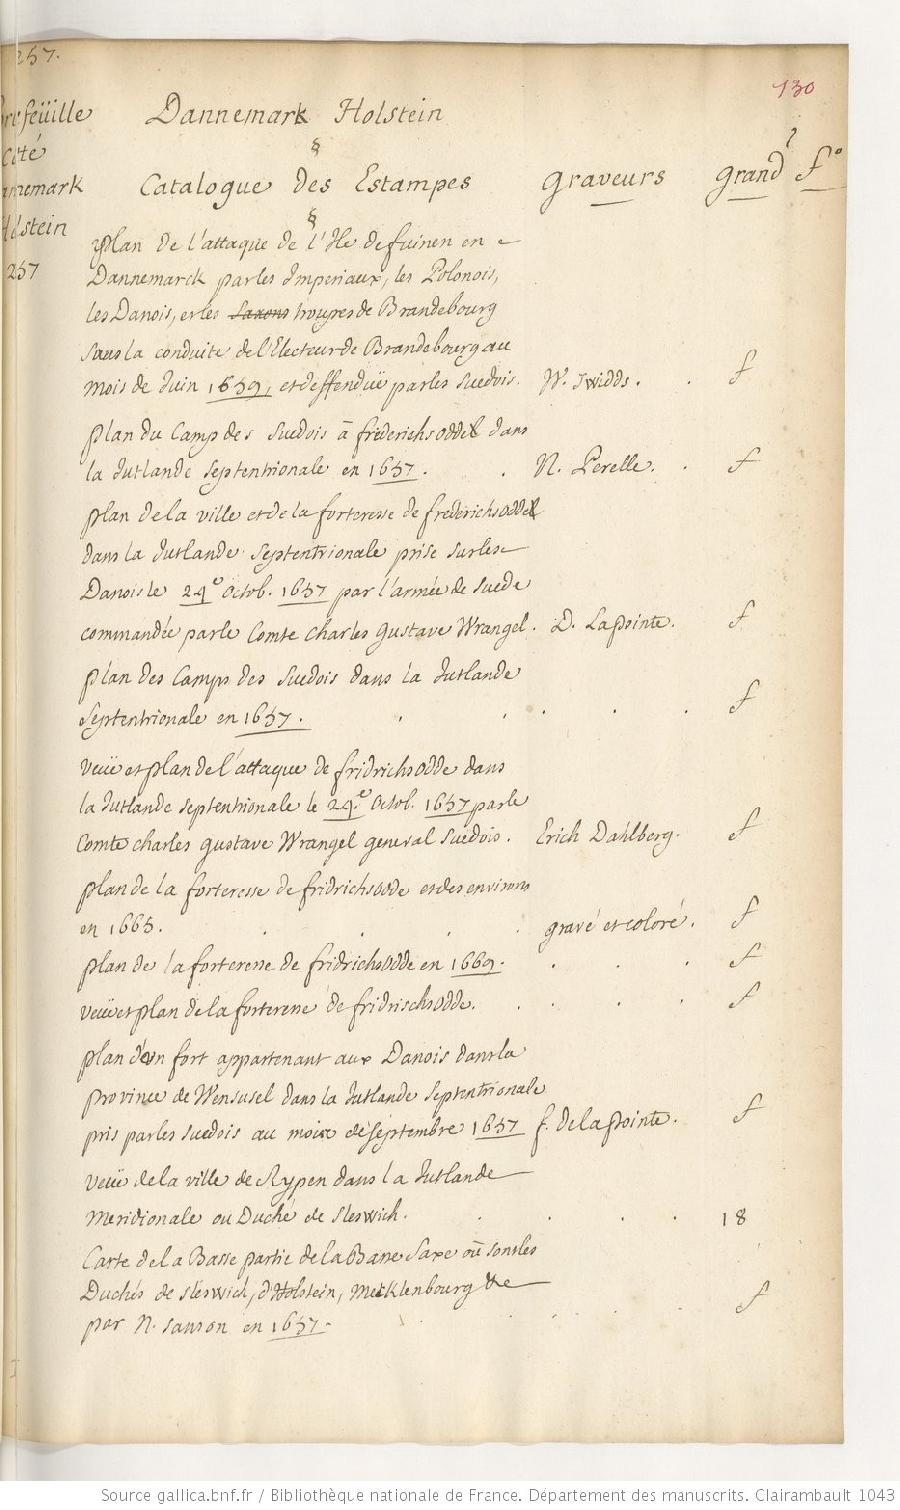 257.
130
feüille Dannemark Holstein
Cotté §
Dannemark Catalogue Des Estampes Graveurs grand f°
Holstein §
257
plan de l'attaque de l'Ile de fuinen en
Dannemarck par les Imperiaux, les Polonois,
les Danois, et les Saxons troupes de Brandebourg
sous la conduite de l'Electeur de Brandebourg au
mois de Juin 1659, et deffendüe par les Suedois. W. Swidds. f
plan du Camp des Suedois à frederichsodde dans
la Jutlande Septentrionale en 1657. N. Perelle. f
plan de la ville et de la forteresse de frederichsodde
dans la Jutlande Septentrionale prise sur les
Danois le 24e Octob. 1657 par l'armée de Suede
commandée par le Comte Charles Gustave Wrangel. D. Lapointe. f
plan des Camps des Suedois dans la Jutlande
Septentrionale en 1657. f
Veüe et plan de l'attaque de fridrichsodde dans
la Jutlande Septentrionale le 24e Octob. 1657 par le
Comte Charles Gustave Wrangel general Suedois. Erich Dahlberg. f
plan de la forteresse de fridrichsodde et des environs
en 1665. gravé et coloré. f
plan de la forteresse de fridrichsodde en 1669. f
veüe et plan de la forteresse de fridrischsodde. f
plan d'un fort appartenant aux Danois dans la
province de Wensusel dans la Jutlande Septentrionale
pris par les Suedois au mois de Septembre 1657 f. de la pointe. f
veüe de la ville de Rypen dans la Jutlande
Meridionale ou Duché de Sleswich. 18
Carte de la Basse partie de la Basse Saxe où sont les
Duchés de Sleswich, d'Holstein, Mecklenbourg &c
par N. Sanson en 1657. f
Source gallica.bnf.fr / Bibliothèque nationale de France. Département des manuscrits. Clairambault 1043